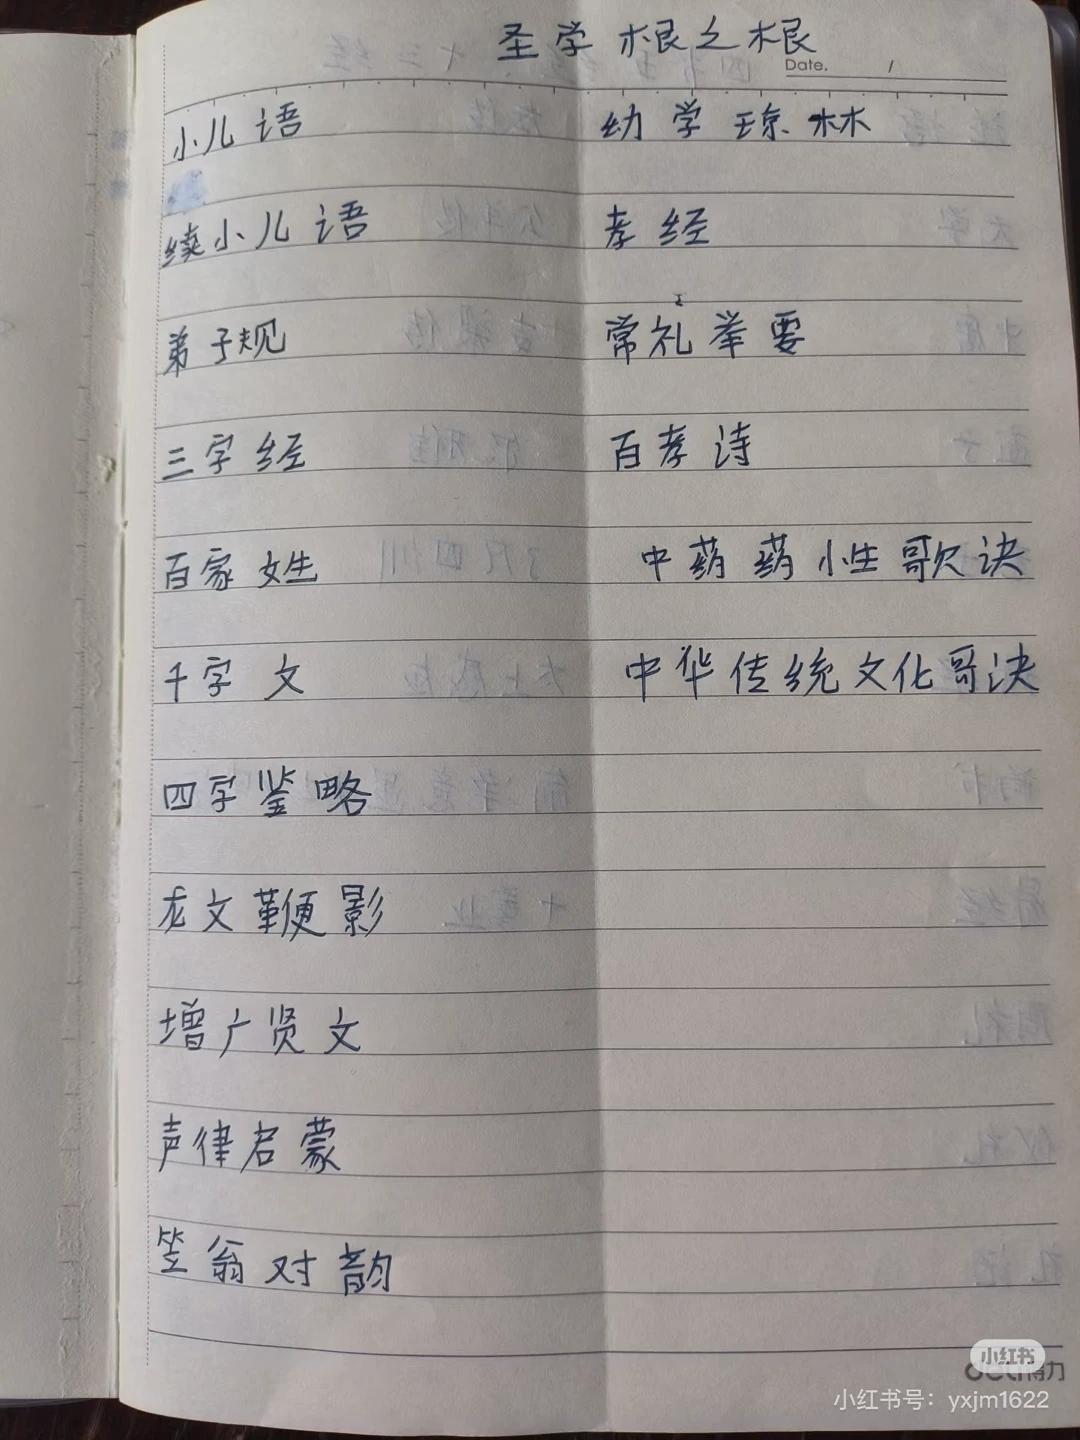 圣学根之根
Date. /
小儿语
续小儿语
弟子规
三字经
百家姓
千字文
四字鉴略
龙文鞭影
增广贤文
声律启蒙
笠翁对韵
幼学琼林
孝经
常礼举要
百孝诗
中药药性歌诀
中华传统文化哥决
小红书
deli得力
小红书号：yxjm1622